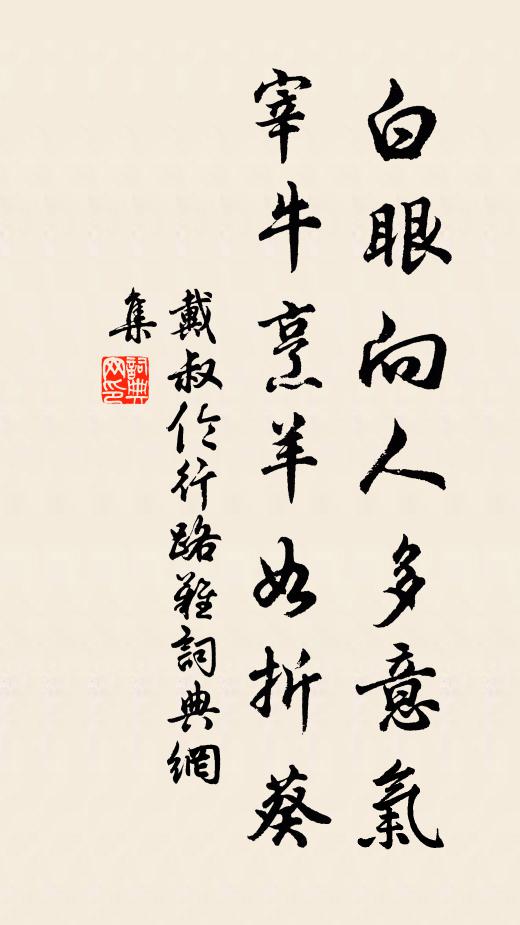 白眼向人多意氣
宰牛烹羊如折葵
戴叔倫行路難詞典網
集
詞典
网印